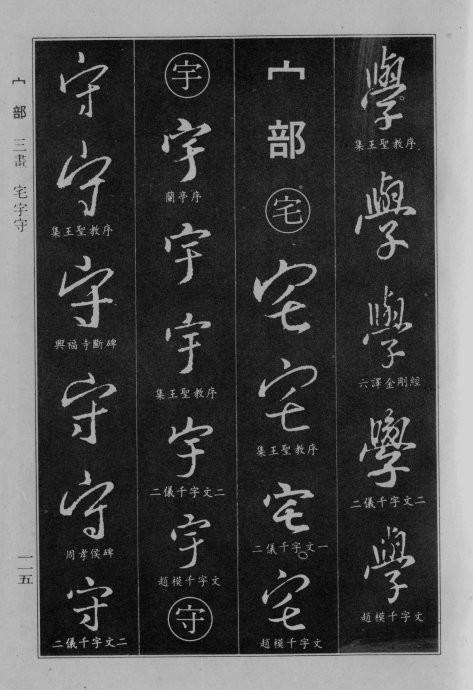 學
集王聖教序
學
學
六譯金剛經
學
二儀千字文二
學
趙模千字文
宀部
宅
宅
宅
集王聖教序
宅
二儀千字文一
宅
趙模千字文
宇
宇
蘭亭序
宇
宇
集王聖教序
宇
二儀千字文二
宇
趙模千字文
守
守
守
集王聖教序
守
興福寺斷碑
守
守
周孝侯碑
守
二儀千字文二
宀部 三畫 宅宇守
一一五